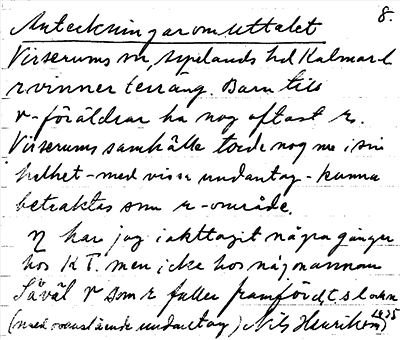 8.
Anteckningar om uttalet
Virserums sn, Aspelands hd Kalmar l
r vinner terräng. Barn till
r-föräldrar ha nog oftast r.
Virserums samhälle torde nog nu i sin
helhet - med vissa undantag - kunna
betraktas som r-område.
η har jag iakttagit några gånger
hos K T. men icke hos någon annan
Såväl r som r faller framför d, t, s l o n
(med undantag) Nils Henrikson
1935